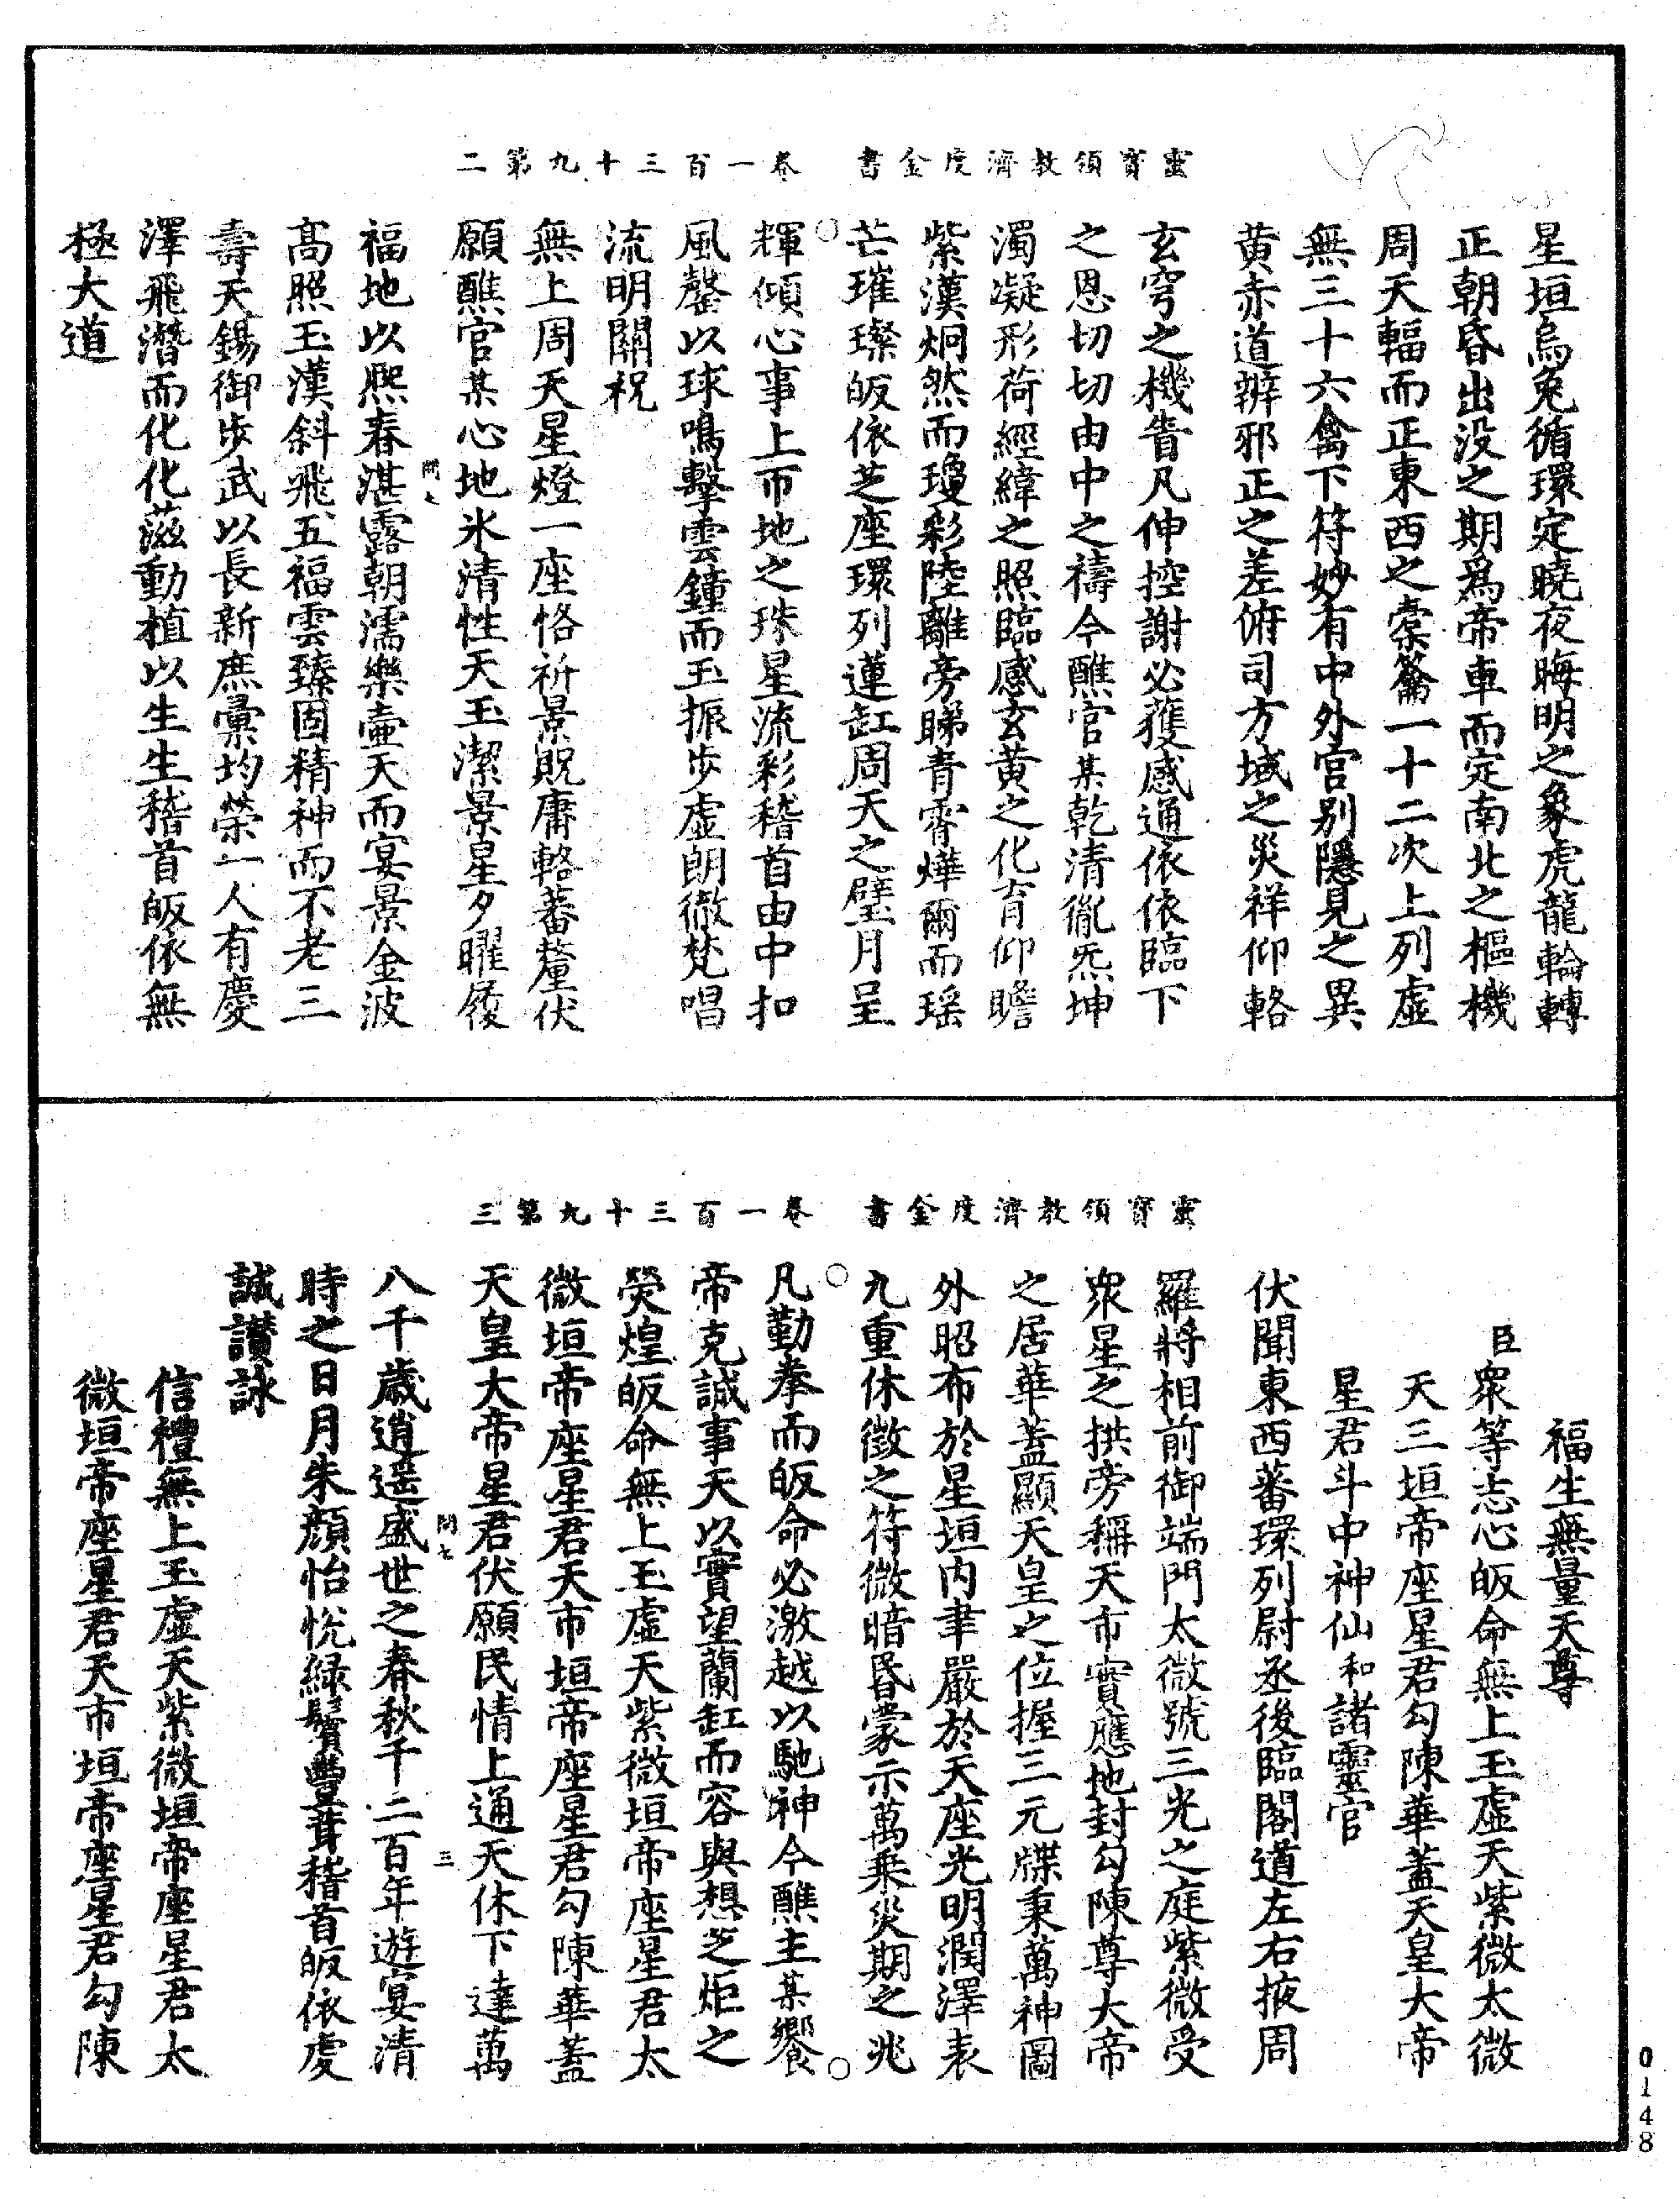 靈寶領教濟度金書　卷一百三十九第二
星垣烏兔循環定曉夜晦明之象虎龍輪轉
正朝昏出没之期爲帝車而定南北之樞機
周天輻而正東西之橐籥一十二次上列虛
無三十六禽下符妙有中外宫别隱見之異
黄赤道辨邪正之差俯司方域之災祥仰輅
玄穹之機眚凡伸控謝必獲感通依依臨下
之恩切切由中之禱今醮官某乾清胤炁坤
濁凝形荷經緯之照臨感玄黄之化育仰瞻
紫漢炯然而瓊彩陸離旁睇青霄燁爾而瑶
芒璀璨皈依芝座環列蓮缸周天之璧月呈
輝傾心事上帀地之珠星流彩稽首由中扣
風罄以球鳴擊雲鐘而玉振步虚朗徹梵唱
流明關祝
無上周天星燈一座恪祈景貺庸輅蕃釐伏
願醮官某心地氷清性天玉潔景星夕曜履
福地以熙春湛露朝濡樂壷天而宴景金波
高照玉漢斜飛五福雲臻固精神而不老三
壽天錫御步武以長新庶彙均榮一人有慶
澤飛潛而化化滋動植以生生稽首皈依無
極大道
靈寶領教濟度金書　卷一百三十九第三
福生無量天尊
臣衆等志心皈命無上玉虚天紫微太微
天三垣帝座星君勾陳華蓋天皇大帝
星君斗中神仙和諸靈官
伏聞東西蕃環列尉丞後臨閣道左右掖周
羅將相前御端門太微號三光之庭紫微受
衆星之拱旁稱天市實應地封勾陳尊大帝
之居華蓋顯天皇之位握三元牒秉萬神圖
外昭布於星垣内聿嚴於天座光明潤澤表
九重休徵之符微暗昏蒙示萬乗災期之兆
凡勤拳而皈命必激越以馳神今醮主某饗
帝克誠事天以實望蘭缸而容與想芝炬之
熒煌皈命無上玉虚天紫微垣帝座星君太
微垣帝座星君天市垣帝座星君勾陳華蓋
天皇大帝星君伏願民情上通天休下達萬
八千歲逍遥盛世之春秋千二百年遊宴清
時之日月朱顔怡悦緑鬢豐茸稽首皈依虔
誠讃詠
信禮無上玉虚天紫微垣帝座星君太
微垣帝座星君天市垣帝座星君勾陳
0148